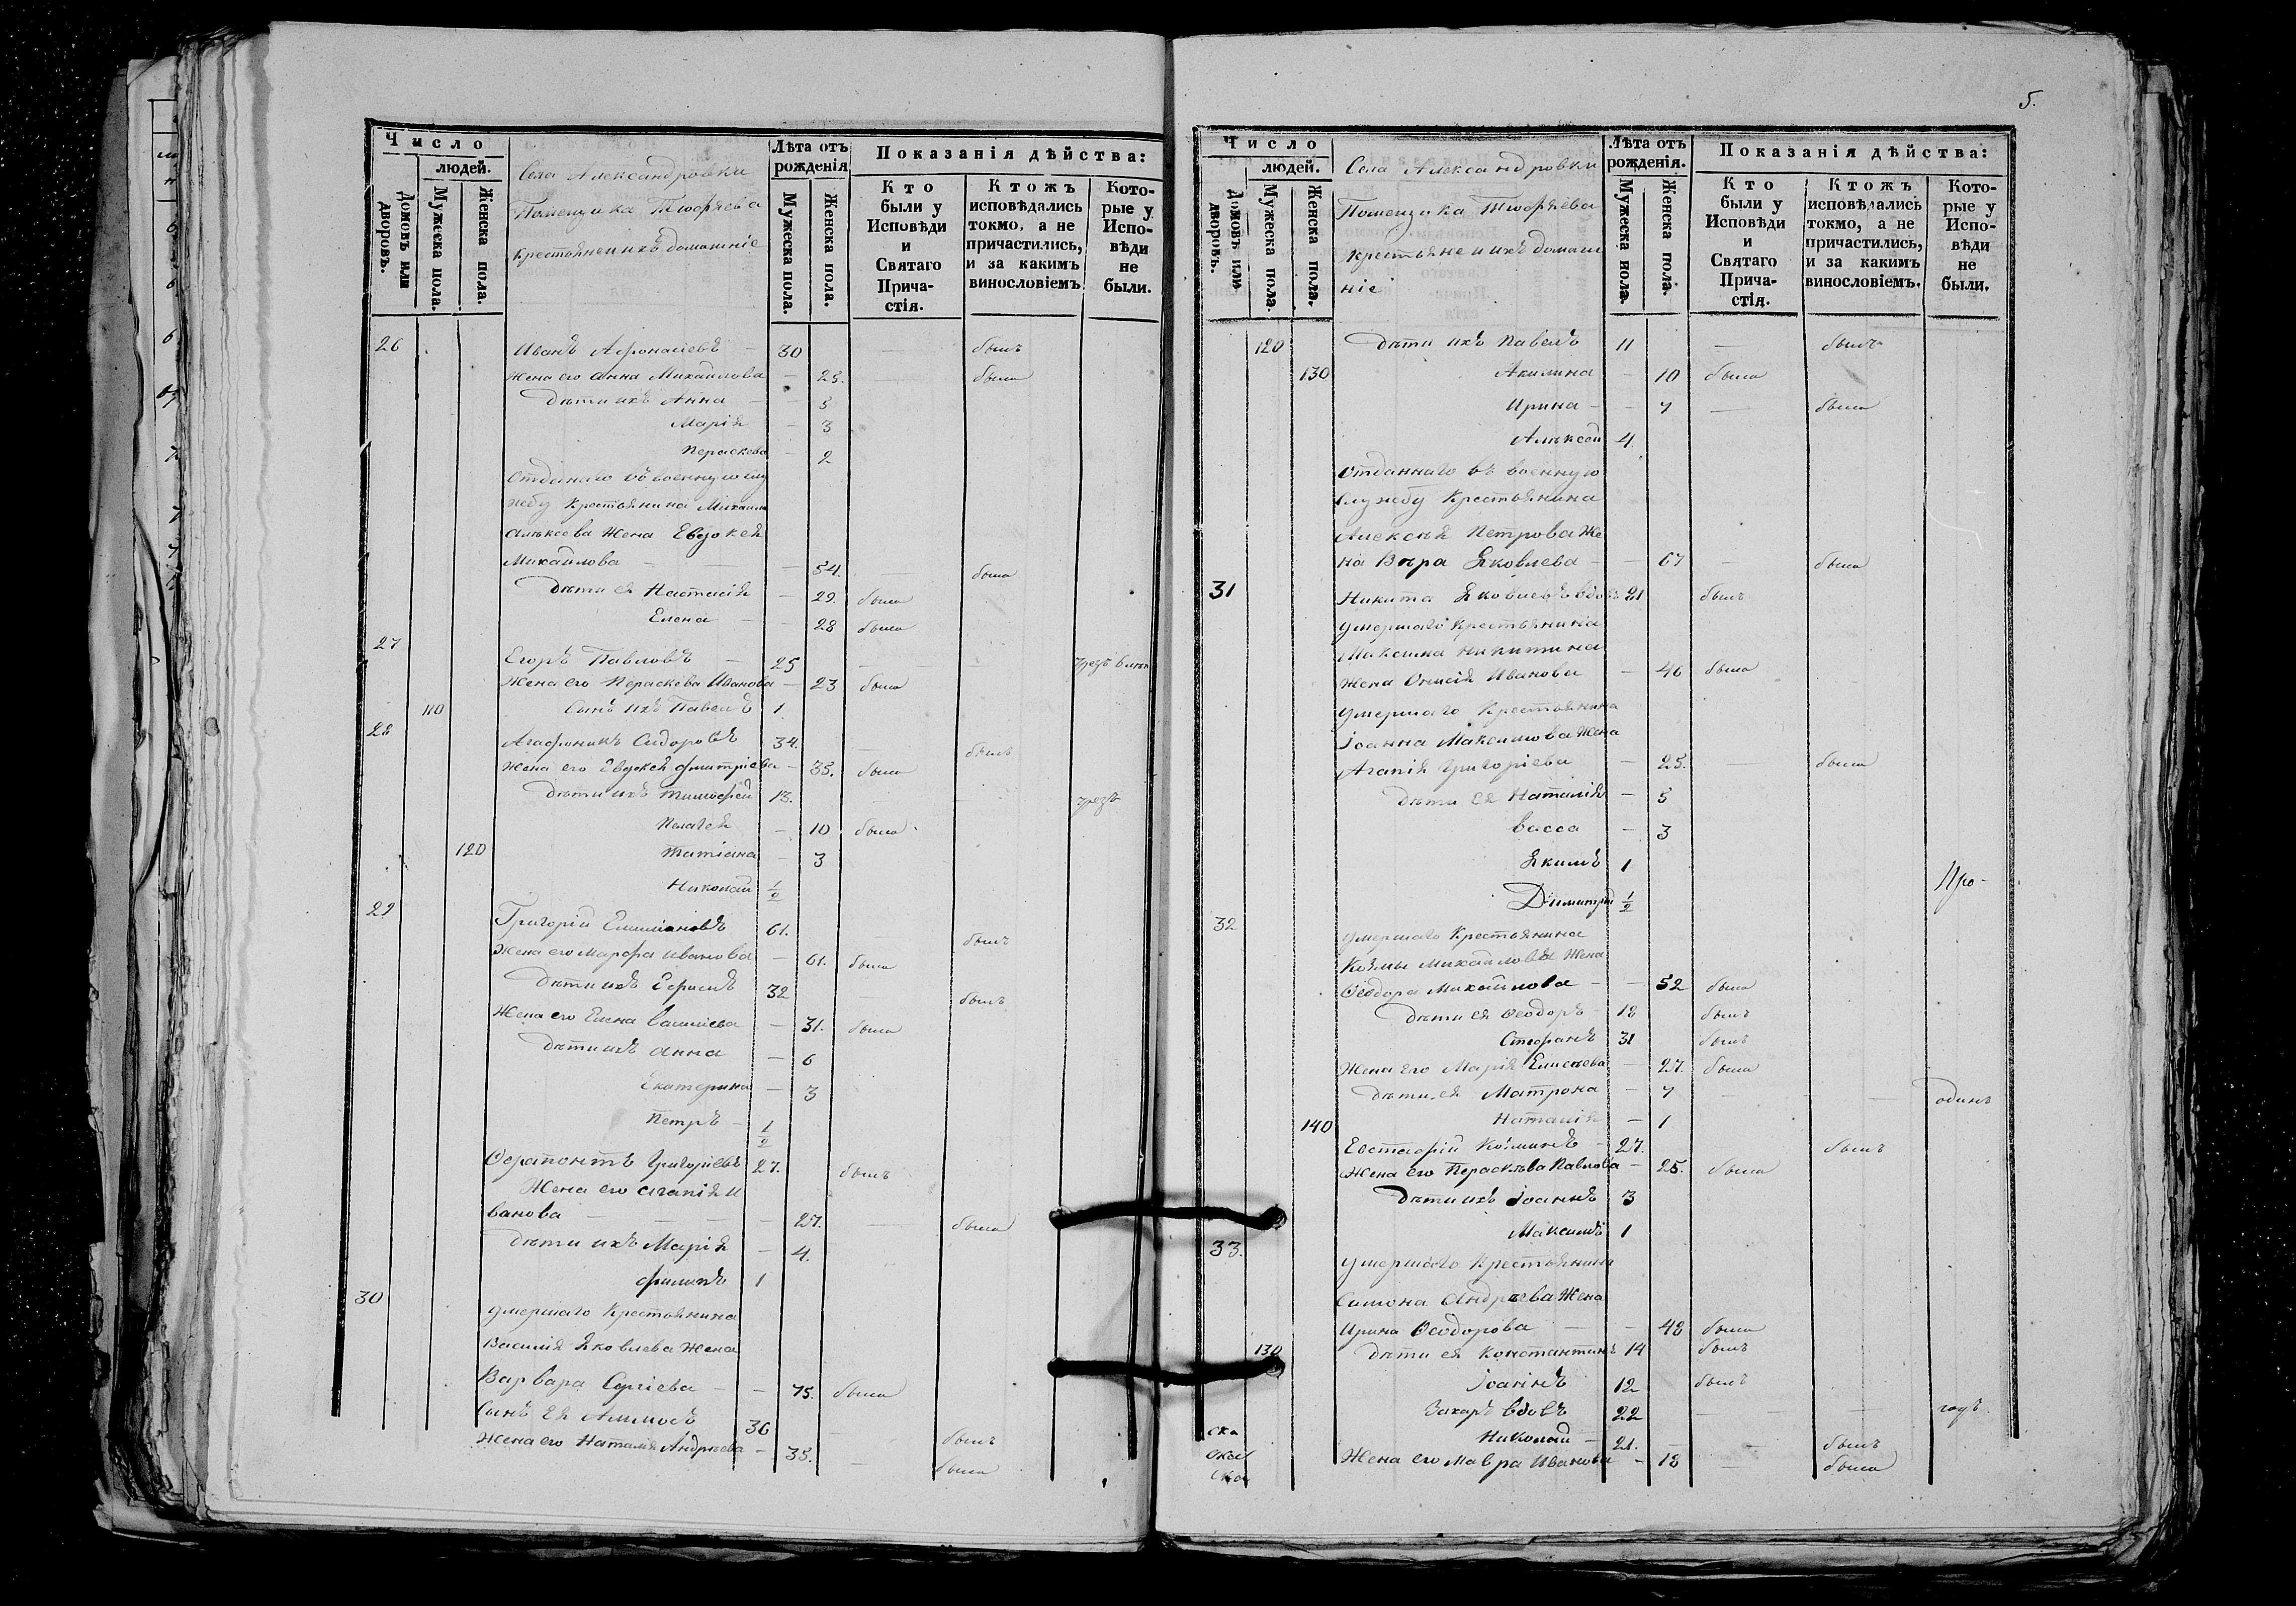 Число
людей.
Домовъ или дворовъ.
Мужеска пола.
Женска пола.
Села Александровки
Помещика
крестьяне и ихъ домашніе
Лѣта отъ рожденія
Мужеска пола.
Женска пола.
Показанія дѣйства:
Кто были у Исповѣди и Святаго Прича-стія.
Ктожъ исповѣдались токмо, а не причастились, и за какимъ винословіемъ
Кото-рые у Испо-вѣди не были.
26 Иванъ Афонасіевъ — 30 — былъ
Жена его Анна Михайлова — 25. — была
Дѣти ихъ Анна — — 5
Марія — 3
Параскева — 2
Отданнаго въ военную слу
жбу Крестьянина Михаила
Алексеева Жена Евдокея
Михайлова — — — 54. — была
Дѣти ея Настасія — 29. была
Елена — — 28 была
27 Егоръ Павловъ — 25 — —
Жена его Параскева Иванова — 23 была
110 Сынъ ихъ Павелъ 1.
28 Агафоникъ Сидоровъ 34. — былъ
Жена его Евдокея Дмитріева — 35. была
Дѣти ихъ Тимофей 13.
Пелагея — 10 была
120 Татіана — 3
Николай 1/2
29 Григорій Емиліановъ 61. — былъ
Жена его Марфа Иванова — 61. была
Дѣти ихъ Герасимъ 32 былъ
Жена его Елена Василіева — 31. была
Дѣти ихъ Анна — 6
Екатерина — 3
Петръ — 1/2
Ферапонтъ Григоріевъ 27. былъ
Жена его Агапія И
ванова — — — 27. — была
Дѣти ихъ Марія — 4.
Филипъ 1
30 умершаго Крестьянина
Василія Яковлева Жена
Варвара Сергіева — — 75. была
Сынъ ея 36 — былъ
Жена его Наталія Андреева — 35. — была
5.
Число
людей.
Домовъ или дворовъ.
Мужеска пола.
Женска пола.
Села Александровки
Помещика
Крестьяне и ихъ домаш
ніе
Лѣта отъ рожденія.
Мужеска пола.
Женска пола.
Показанія дѣйства:
Кто были у Исповѣди и Святаго Прича-стія.
Ктожъ исповѣдались токмо, а не причастились, и за какимъ винословіемъ.
Кото-рые у Испо-вѣди не были.
120 Дѣти ихъ Павелъ 11 — былъ
130 Акилина — 10 была
Ирина — — 7 — была
Алексей 4.
Отданнаго въ военную
службу Крестьянина
Алексѣя Петрова Же
на Вѣра Яковлева — — 67 — была
31 Никита Яковлевъ вдовъ 21 былъ
умершаго Крестьянина
Максима Никитина
Жена Онисія Иванова — 46 была
умершаго Крестьянина
Іоанна Максимова Жена
Агапія Григоріева — 25. — была
Дѣти ея Наталія — 5
Васса — 3
Якимъ 1
Димитрій 1/2
Про-
32 умершаго Крестьянина
Козмы Михайлова Жена
Феодора Михайлова — — 52 была
Дѣти ея Феодоръ — 18 былъ
Стефанъ 31 былъ
Жена его Марія Елисѣева — 27. была
Дѣти ея Матрона — 7 — — одинъ
140 Наталія — 1
Евстафій Козминъ — 27. былъ
Жена его Параскѣва Павлова — 25. была
Дѣти ихъ Іоаннъ 3
Максимъ 1
33. умершаго Крестьянина
Симона Андрѣева Жена
Ирина Феодорова — — 48 была
130 Дѣти ея Константинъ 14 былъ
Іоаннъ 12 былъ
Захаръ вдовъ 22 — — — годъ
Николай — 21. — — былъ
Жена его Мавра Иванова — 18 — была